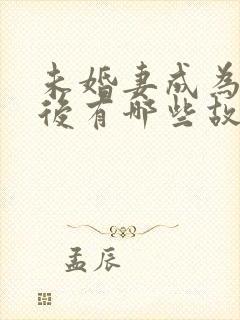 未婚妻成為
後有哪些故
孟辰